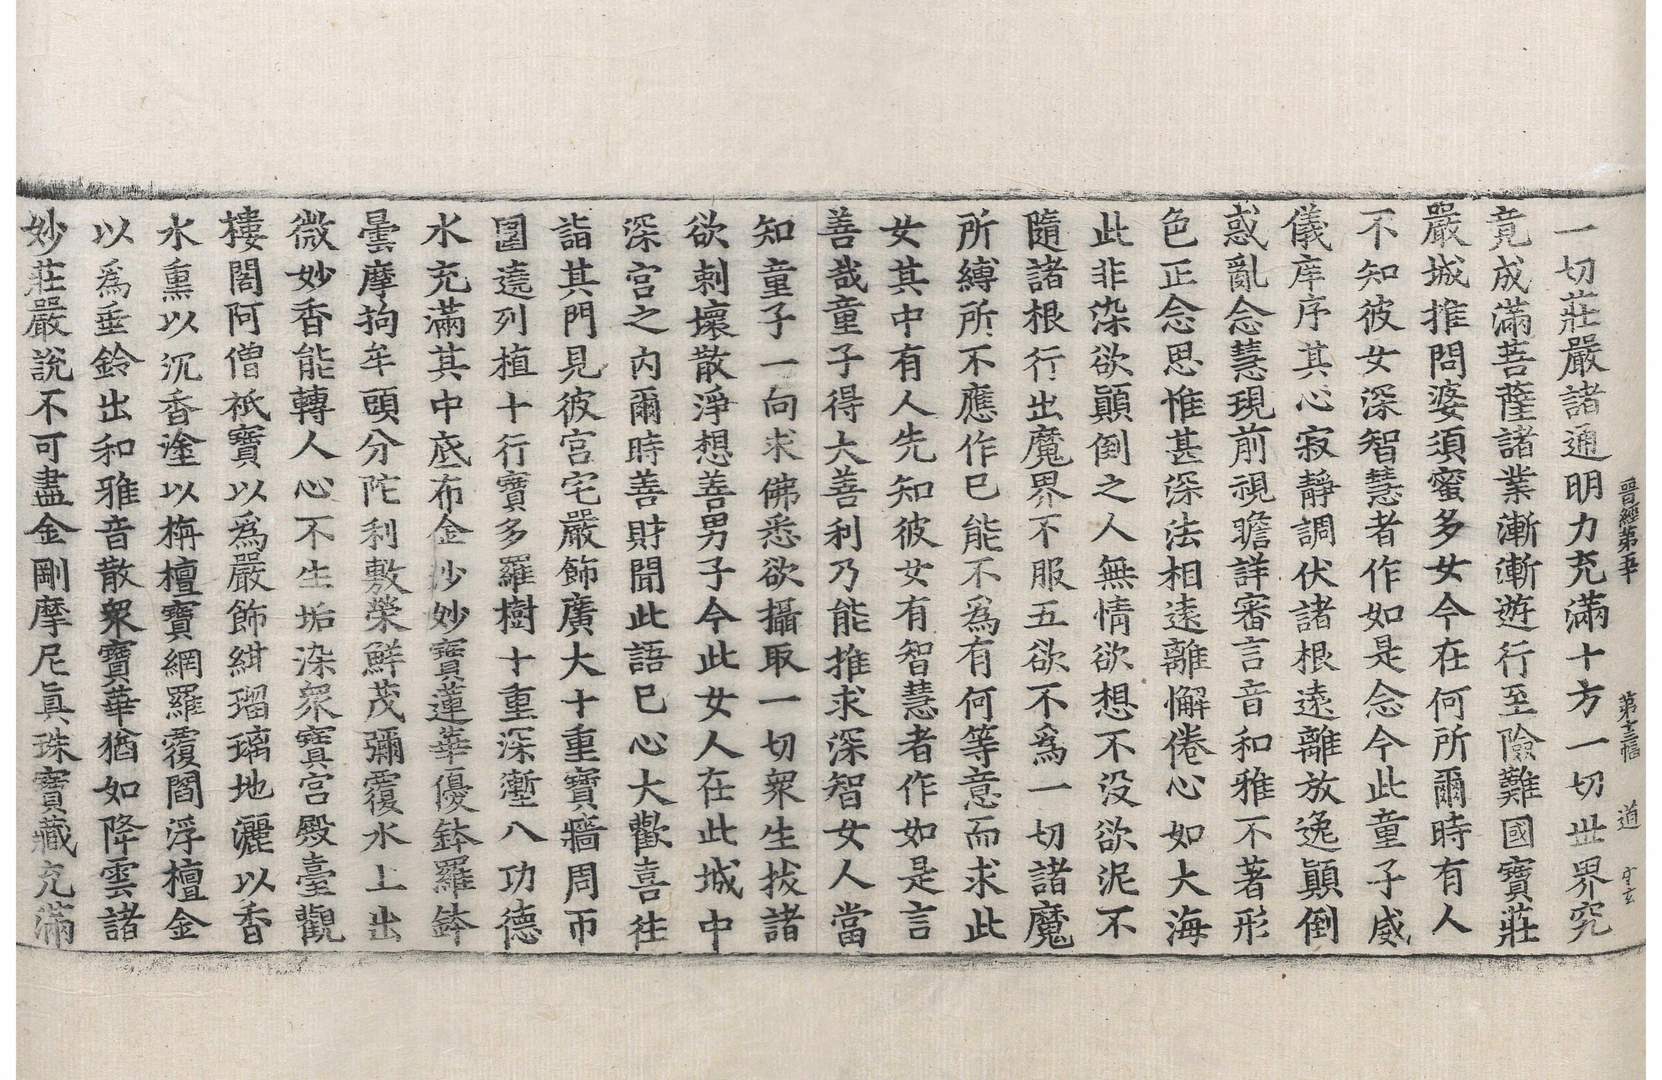 晉經第五十 第十三幅 道
一切莊嚴諸通明力充滿十方一切世界究
竟成滿菩薩諸業漸漸遊行至險難國寶莊
嚴城推問婆須蜜多女今在何所爾時有人
不知彼女深智慧者作如是念今此童子威
儀庠序其心寂靜調伏諸根遠離放逸顚倒
惑亂念慧現前視瞻詳審言音和雅不著形
色正念思惟甚深法相遠離懈倦心如大海
此非染欲顚倒之人無情欲想不没欲泥不
隨諸根行出魔界不服五欲不爲一切諸魔
所縛所不應作已能不爲有何等意而求此
女其中有人先知彼女有智慧者作如是言
善哉童子得大善利乃能推求深智女人當
知童子一向求佛悉欲攝取一切衆生拔諸
欲刺壞散淨想善男子今此女人在此城中
深宮之內爾時善財聞此語已心大歡喜往
詣其門見彼宮宅嚴飾廣大十重寶牆周帀
圍遶列植十行寶多羅樹十重深壍八功德
水充滿其中底布金沙妙寶蓮華優鉢羅鉢
曇摩拘牟頭分陀利敷榮鮮茂彌覆水上出
微妙香能轉人心不生垢染衆寶宮殿臺觀
樓閣阿僧祇寶以爲嚴飾紺瑠璃地灑以香
水熏以沉香塗以栴檀寶網羅覆閻浮檀金
以爲垂鈴出和雅音散衆寶華猶如降雲諸
妙莊嚴說不可盡金剛摩尼眞珠寶藏充滿